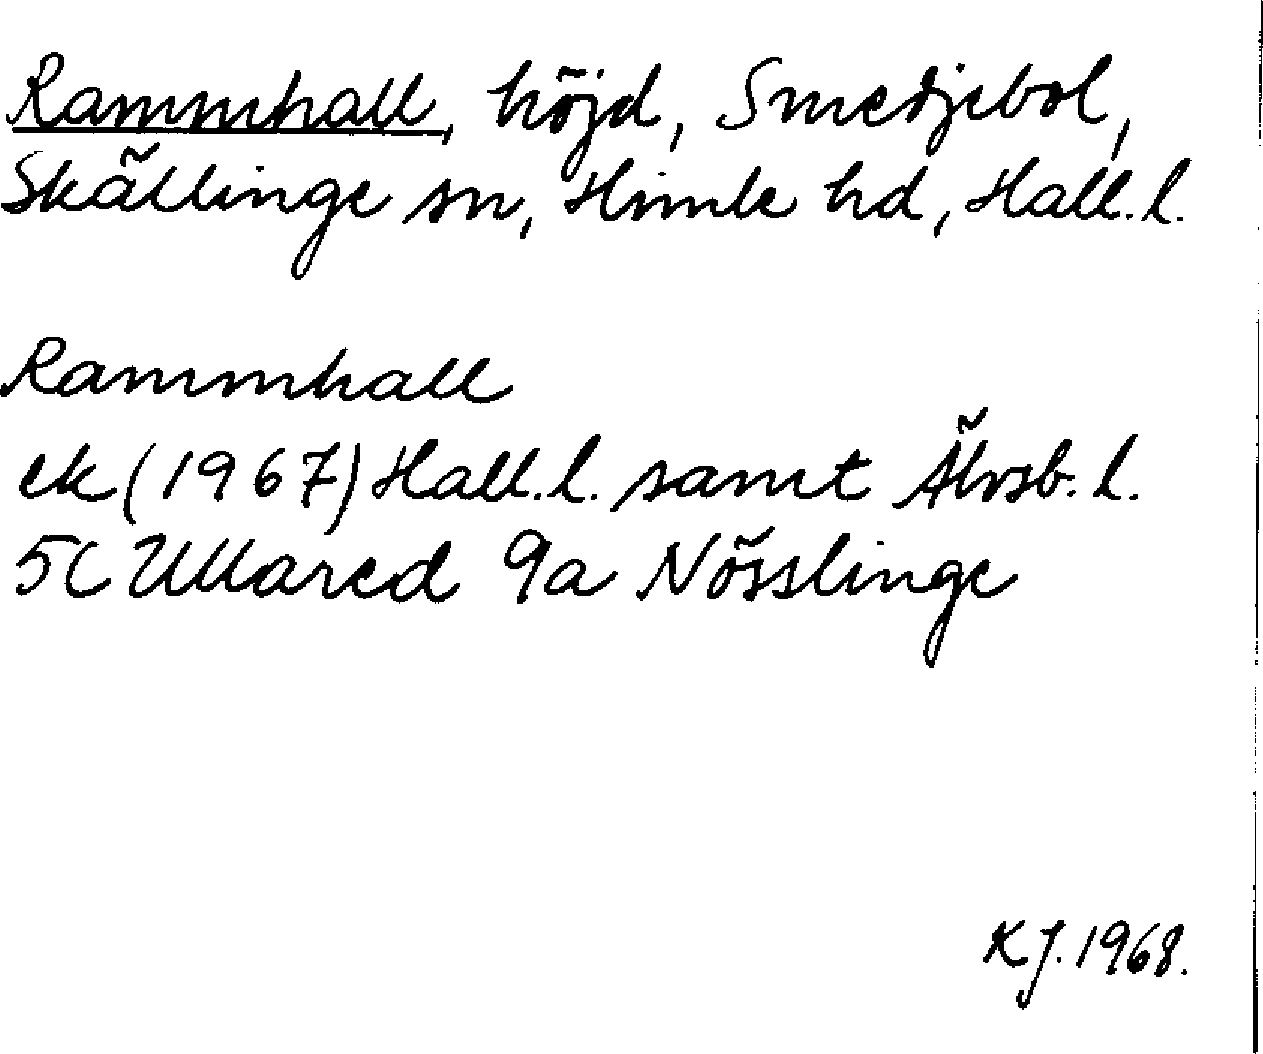 Rammhall, höjd, Smedjebol,
Skällinge sn, Himle hd, Hall. l.
Rammhall
ek (1967) Hall. l. samt Älvsb. l.
5C Ullared 9a Nösslinge
K J. 1968.